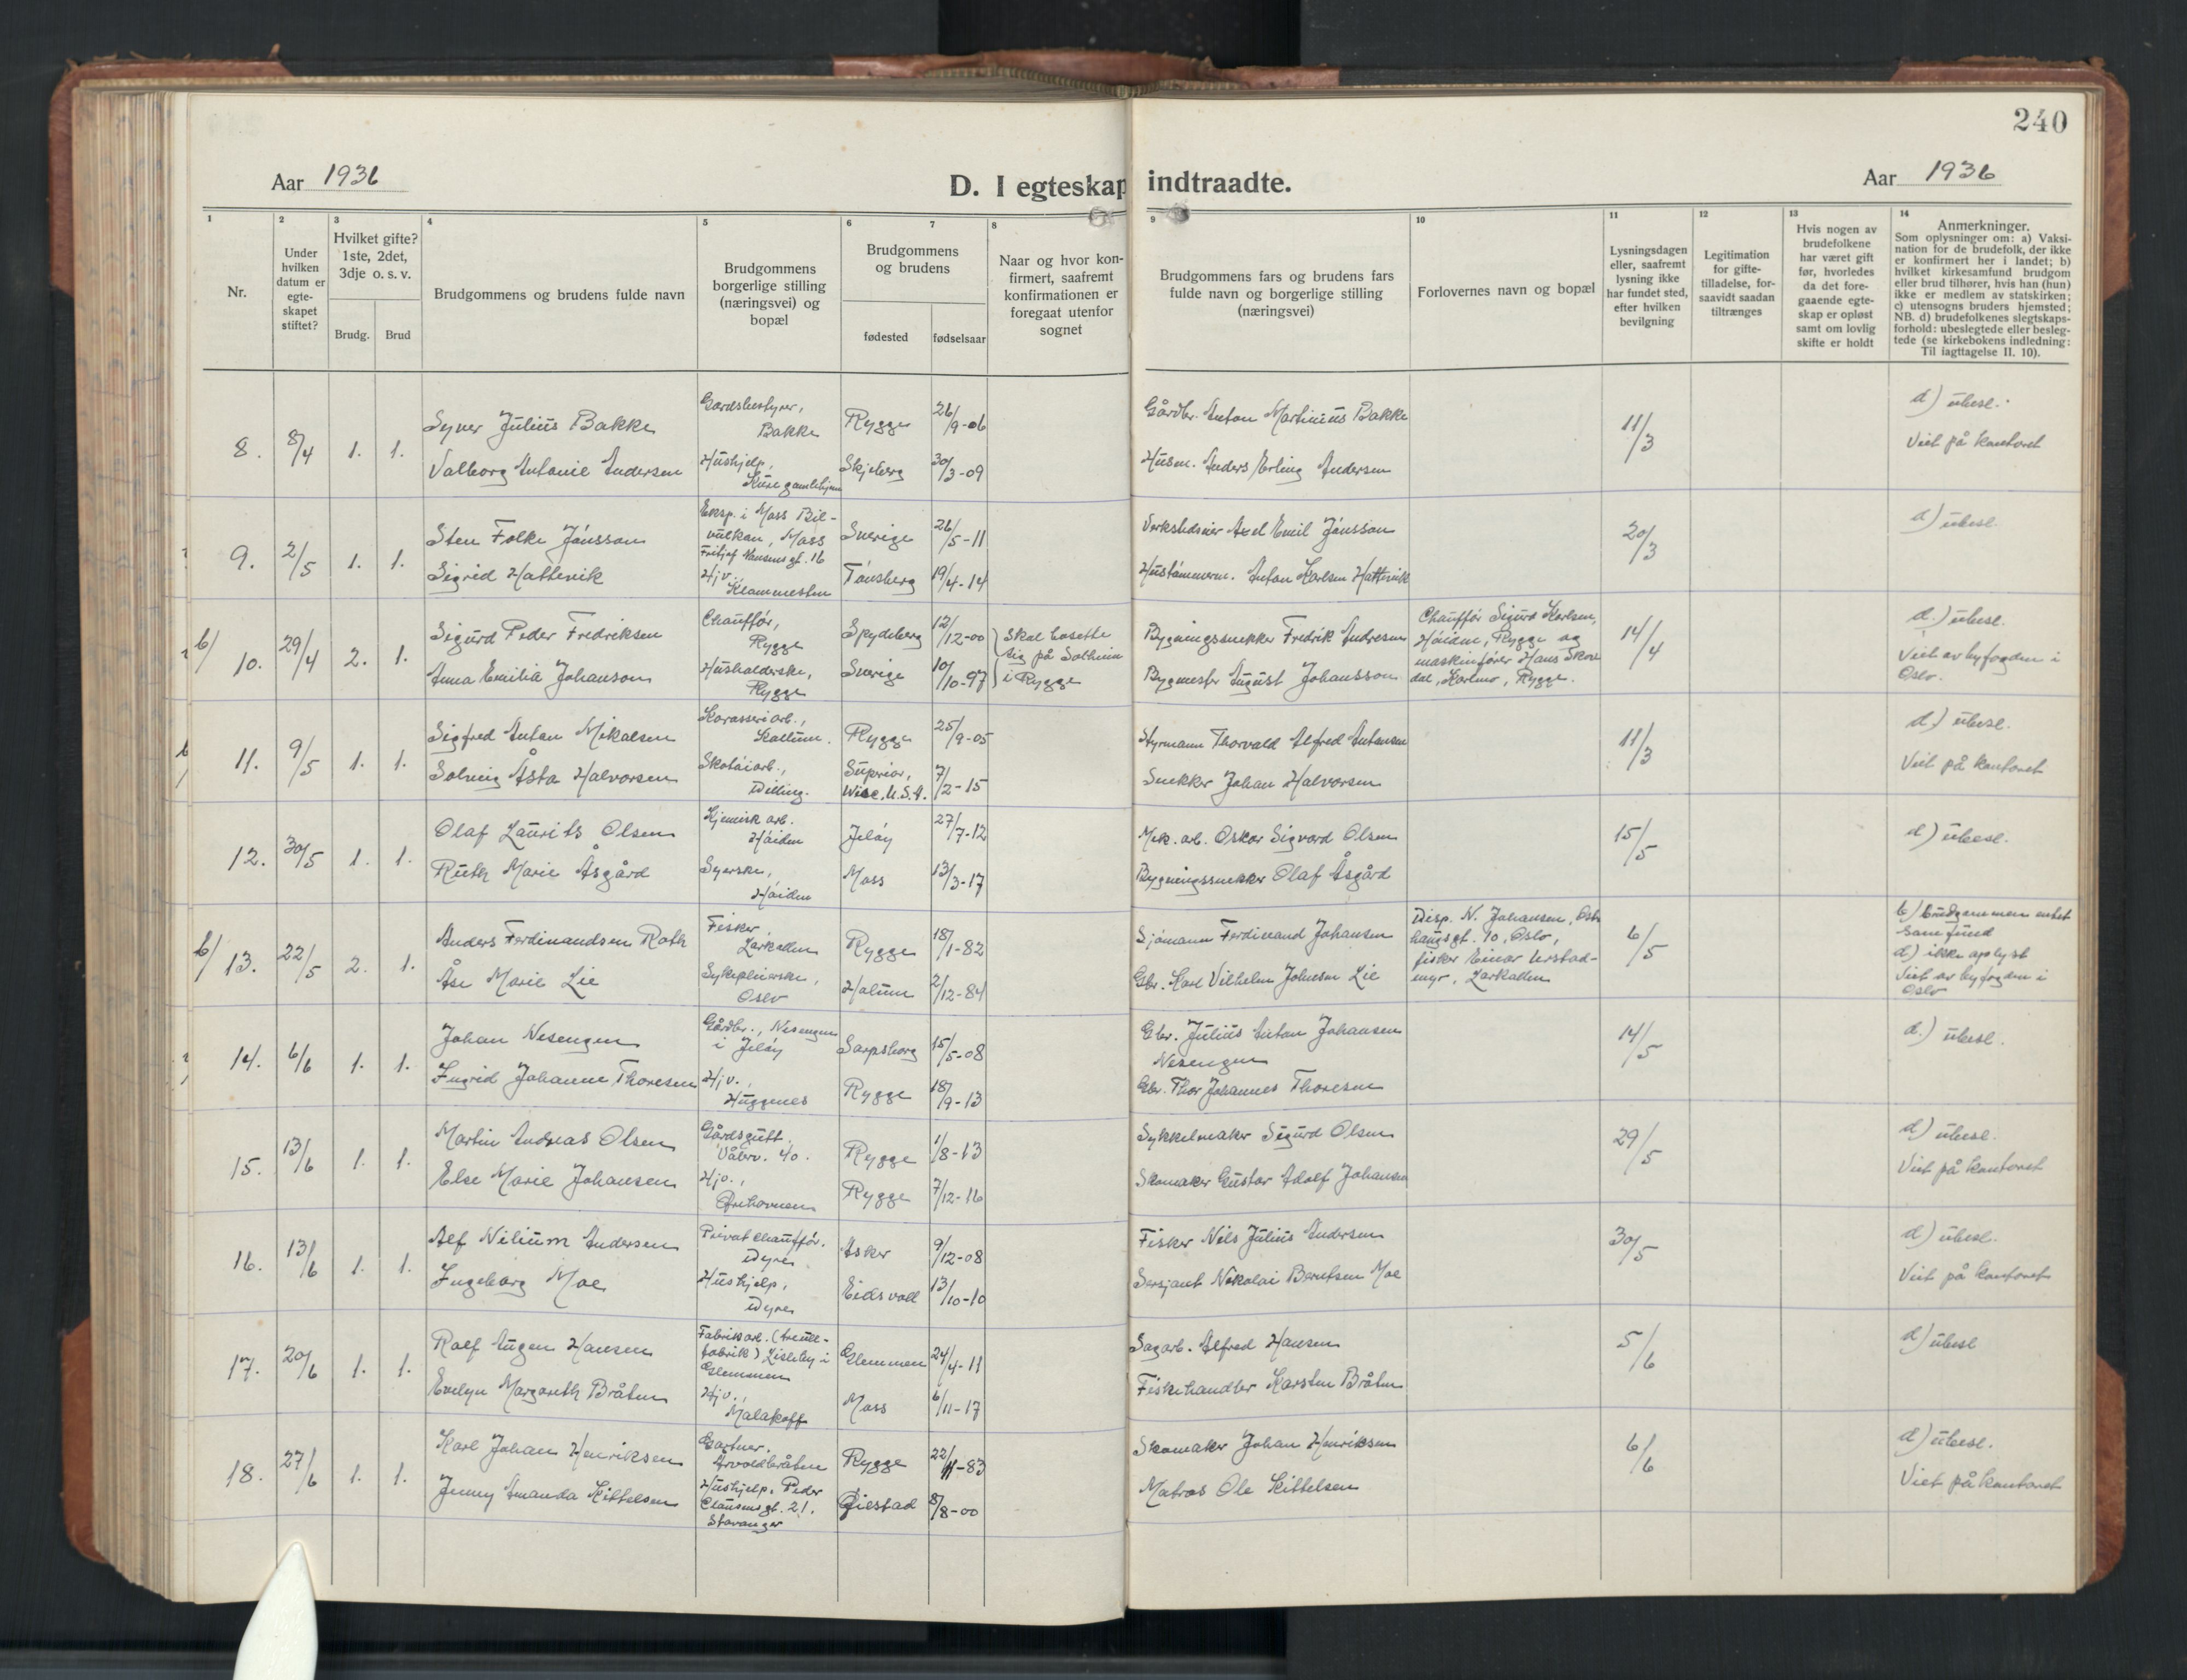 240
Aar 1936
D. I egteskap indtraadte.
Aar 1936
1
2
3
4
5
6
7
8
9
10
11
12
13
14
Nr.
Under
hvilken
datum er
egte-
skapet
stiftet?
Hvilket gifte?
1ste, 2det,
3dje o. s. v.
Brudg.
Brud
Brudgommens og brudens fulde navn
Brudgommens
borgerlige stilling
(næringsvei) og
bopæl
Brudgommens
og brudens
fødested
fødselsaar
Naar og hvor kon-
firmert, saafremt
konfirmationen er
foregaat utenfor
sognet
Brudgommens fars og brudens fars
fulde navn og borgerlige stilling
(næringsvei)
Forlovernes navn og bopæl
Lysningsdagen
eller, saafremt
lysning ikke
har fundet sted,
efter hvilken
bevilgning
Legitimation
for gifte-
tilladelse, for-
saavidt saadan
tiltrænges
Hvis nogen av
brudefolkene
har været gift
før, hvorledes
da det fore-
gaaende egte-
skap er opløst
samt om lovlig
skifte er holdt
Anmerkninger.
Som oplysninger om: a) Vaksi-
nation for de brudefolk, der ikke
er konfirmert her i landet; b)
hvilket kirkesamfund brudgom
eller brud tilhører, hvis han (hun)
ikke er medlem av statskirken;
c) utensogns bruders hjemsted;
NB. d) brudefolkenes slegtskaps-
forhold: ubeslegtede eller besleg-
tede (se kirkebokens indledning:
Til iagttagelse II. 10).
8. 8/4 1. 1.
Syver Julius Bakke
Gardsbestyrer,
Bakke
Rygge 26/9-06
Gårdbr. Anton Martinius Bakke
11/3
d) ubesl.
Viet på kontoret
Valborg Antonie Andersen
Hushjelp,
Kure gamlehjem
Skjeberg 30/3-09
Husm. Anders Erling Andersen
9. 2/5 1. 1.
Sten Folke Jónsson
Eksp. i Moss Bil-
vulkan, Moss
Fritjof Nansensgt. 16
Sverige 26/5-11
Verkstedseier Axel Emil Jónsson
20/3
d) ubesl.
Sigrid Hattevik
Hjv.
Klommesten
Tónsberg 19/4-14
Hustómmerm. Anton Karlsen Hattevik
b/ 10. 29/4 2. 1.
Sigurd Peder Fredriksen
Chauffór,
Rygge
Spydeberg 12/12-00
Skal bosette
sig på Solheim
i Rygge
Bygningssnekker Fredrik Andresen
Chauffór Sigurd Karlsen,
Hóiden, Rygge og
maskinfórer Hans Skov
dal, Karlmo, Rygge.
14/4
d.) ubesl.
Viet av byfogden i
Oslo.
Anna Emilia Johanson
Husholderske,
Rygge
Sverige 10/10-97
Bygmester August Johansson
11. 9/5 1. 1.
Sigfred Anton Mikalsen
Karosseriarb.,
Kallum.
Rygge 25/9-05
Styrmann Thorvald Alfred Antonsen
11/3
d.) ubesl.
Viet på kontoret
Solveig Åsta Halvorsen
Skotóiarb.,
Dilling.
Suprior,
Wisc. U.S.A. 7/2-15
Snekker Johan Halvorsen
12. 30/5 1. 1.
Olaf Laurits Olsen
Kjemisk arb.
Hóiden
Jelóy 27/7-12
Mek. arb. Oskar Sigvard Olsen
15/5
d) ubesl.
Ruth Marie Åsgård
Syerske,
Hóiden
Moss 13/3-17
Bygningssnekker Olaf Åsgård
b/ 13. 22/5 2. 1.
Anders Ferdinandsen Roth
Fisker,
Larkollen
Rygge 18/1-82
Sjómann Ferdinand Johansen
Disp. N. Johansen,
haugsgt. 10, Oslo,
fisker Einar Urstad-
myr, Larkollen
6/5
b) brudgommen intet
samfund
d) ikke oplyst
Viet av byfogden i
Oslo
Åse Marie Lie
Sykepleierske,
Oslo
Halum 2/12-84
Gbr. Karl Vilhelm Johnsen Lie
14. 6/6 1. 1.
Johan Nesengen
Gårdbr., Nesengen
i Jelóy
Sarpsborg 15/5-08
Gbr. Julius Anton Johansen
Nesengen
14/5
d.) ubesl.
Ingrid Johanne Thoresen
Hjv.,
Huggenes
Rygge 18/9-13
Gbr. Thor Johannes Thoresen
15. 13/6 1. 1.
Martin Andreas Olsen
Gårdsgutt.
Vålerv. 40.
Rygge 1/8-13
Sykkelmaker Sigurd Olsen
29/5
d) ubesl.
Viet på kontoret
Else Marie Johansen
Hjv.,
Ørehavnen
Rygge 7/12-16
Skomaker Gustav Adolf Johansen
16. 13/6 1. 1.
Alf Nilium Andersen
Privatchauffór.
Dyre
Asker 9/12-08
Fisker Nils Julius Andersen
30/5
d) ubesl.
Viet på kontoret
Ingeborg Moe
Hushjelp,
Dyre
Eidsvoll 13/10-10
Sersjant Nikolai Berntsen Moe
17. 20/6 1. 1.
Rolf Eugen Hansen
Fabrikarb. (treull-
fabrik) Lisleby i
Glemmen
Glemmen 24/4-11
Sagarb. Alfred Hansen
5/6
d) ubesl
Evelyn Margareth Bråten
Hjv.,
Malakoff
Moss 6/11-17
Fiskehandler Karsten Bråten
18. 27/6 1. 1.
Karl Johan Henriksen
Gartner.
Arvoldbråten
Rygge 22/11-83
Skomaker Johan Henriksen
6/6
d) ubesl.
Viet på kontoret
Jenny Amanda Kittelsen
Hushjelp. Peder
Clausensgt. 21.
Stavanger
Øiestad 8/8-00
Matros Ole Kittelsen